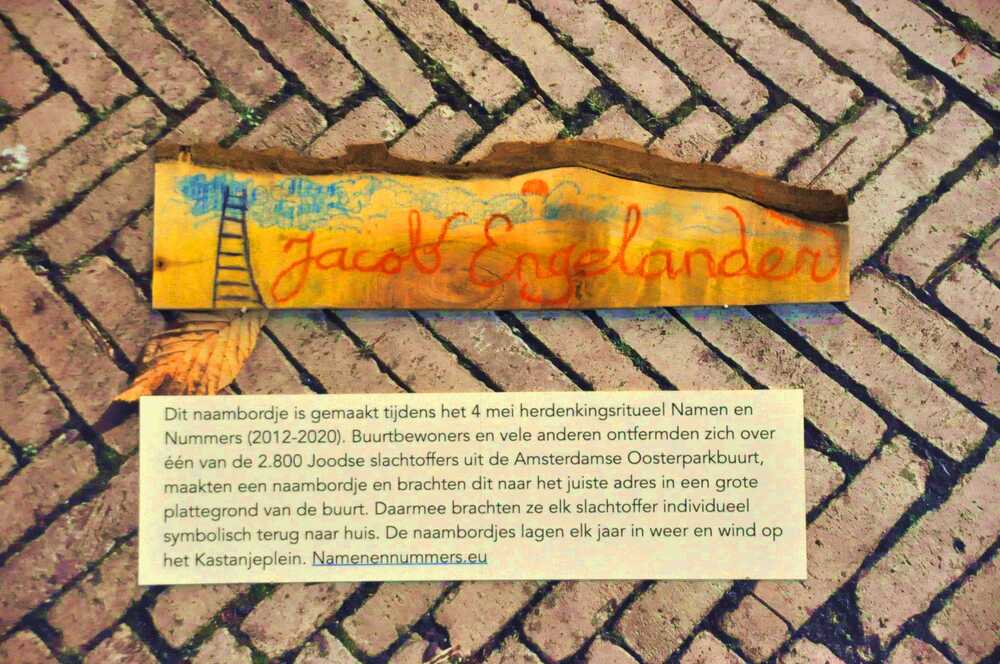 Jacob Engelander
Dit naambordje is gemaakt tijdens het 4 mei herdenkingsritueel Namen en
Nummers (2012-2020). Buurtbewoners en vele anderen ontfermden zich over
één van de 2.800 Joodse slachtoffers uit de Amsterdamse Oosterparkbuurt,
maakten een naambordje en brachten dit naar het juiste adres in een grote
plattegrond van de buurt. Daarmee brachten ze elk slachtoffer individueel
symbolisch terug naar huis. De naambordjes lagen elk jaar in weer en wind op
het Kastanjeplein. Namenennummers.eu